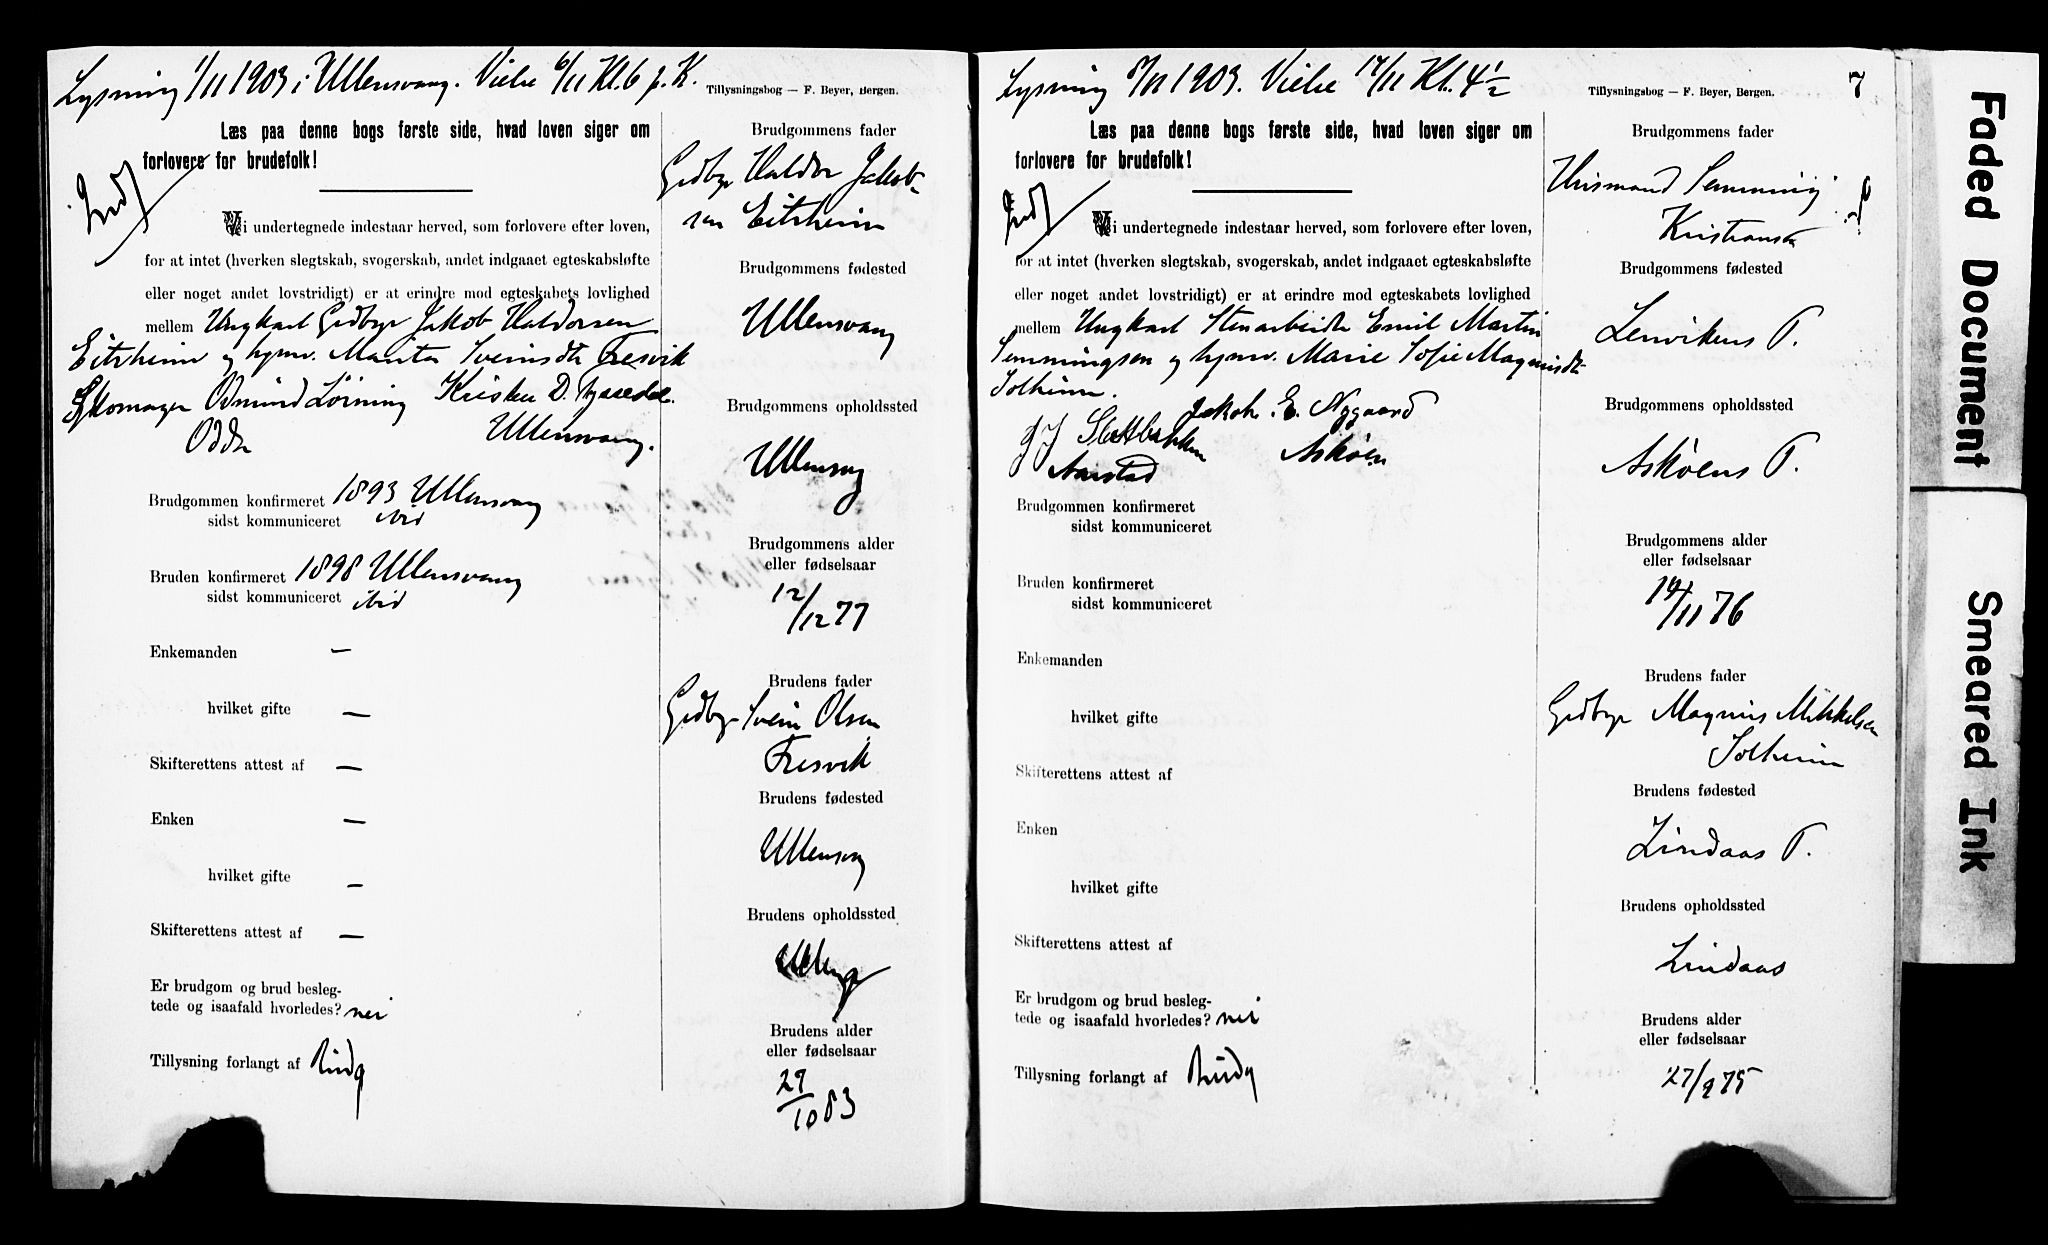 Lysning 1/11 1903 i Ullensvang. Vielse 6/11 Kl. 6 f. K.
Tillysningsbog — F. Beyer, Bergen.
Læs paa denne bogs første side, hvad loven siger om
forlovere for brudefolk!
Indf
Vi undertegnede indestaar herved, som forlovere efter loven,
for at intet (hverken slegtskab, svogerskab, andet indgaaet egteskabsløfte
eller noget andet lovstridigt) er at erindre mod egteskabets lovlighed
mellem Ungkarl Grdbgr Jakob Haldorsen
Eitrheim og Marita Sveinsdtr Fresvik
Skomager Odmund Lőining Kristen D.
Odda Ullensvang.
Brudgommen konfirmeret 1893 Ullensvang
sidst kommuniceret ibid
Bruden konfirmeret 1898 Ullensvang
sidst kommuniceret ibid
Enkemanden —
hvilket gifte —
Skifterettens attest af —
Enken —
hvilket gifte —
Skifterettens attest af —
Er brudgom og brud besleg-
tede og isaafald hvorledes? nei
Tillysning forlangt af Brudg
Brudgommens fader
Grdbgr Haldor Jakob-
sen Eitrheim
Brudgommens fødested
Ullensvang
Brudgommens opholdssted
Ullensvg
Brudgommens alder
eller fødselsaar
12/12 77
Brudens fader
Grdbgr Svein Olsen
Fresvik
Brudens fødested
Ullensvg
Brudens opholdssted
Brudens alder
eller fødselsaar
29/10 83
Lysning 8/11 1903. Vielse 17/11 Kl. 4 1/2
Tillysningsbog — F. Beyer, Bergen.
7
Læs paa denne bogs første side, hvad loven siger om
forlovere for brudefolk!
Indf
Vi undertegnede indestaar herved, som forlovere efter loven,
for at intet (hverken slegtskab, svogerskab, andet indgaaet egteskabsløfte
eller noget andet lovstridigt) er at erindre mod egteskabets lovlighed
mellem Ungkarl Stenarbeider Emil Martin
Semmingsen og Marie Sofie Magnusdtr
Solheim.
J J Slettebakken Jakob. E. Nygaard
Aarstad Askøen
Brudgommen konfirmeret
sidst kommuniceret
Bruden konfirmeret
sidst kommuniceret
Enkemanden
hvilket gifte
Skifterettens attest af
Enken
hvilket gifte
Skifterettens attest af
Er brudgom og brud besleg-
tede og isaafald hvorledes? nei
Tillysning forlangt af Brudg
Brudgommens fader
Husmand Semming
Kristiansen
Brudgommens fødested
Lenvikens P.
Brudgommens opholdssted
Askøens P.
Brudgommens alder
eller fødselsaar
14/11 76
Brudens fader
Grdbgr Magnus Mikkelsen
Solheim
Brudens fødested
Lindaas P.
Brudens opholdssted
Lindaas
Brudens alder
eller fødselsaar
27/2 75
Faded Document
Smeared Ink